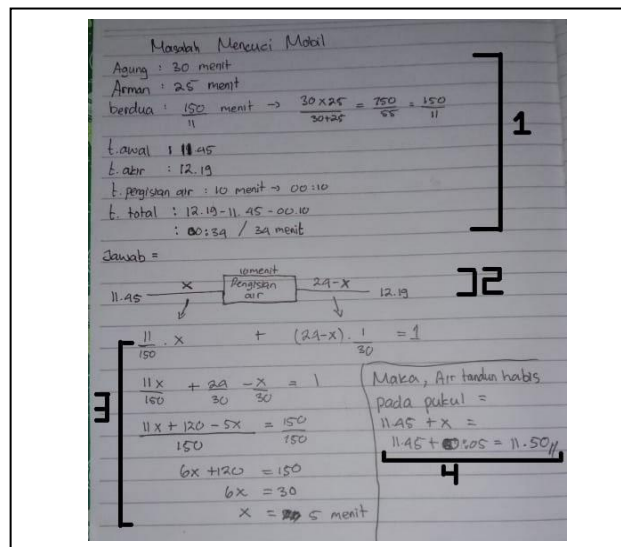 Masalah Mencuci Mobil
Agung : 30 menit
Arman : 25 menit
berdua : 150/11 menit → (30×25)/(30+25) = 750/55 = 150/11
t.awal : 11.45
t.akir : 12.19
t.pengisian air : 10 menit → 00:10
t. total : 12.19-11.45-00.10
: 00:34 / 34 menit
1
Jawab =
11.45 x 10menit Pengisian air 24-x 12.19
2
11/150 . x + (24-x) . 1/30 = 1
11x/150 + 24/30 - x/30 = 1
(11x + 120 - 5x)/150 = 150/150
6x + 120 = 150
6x = 30
x = 5 menit
3
Maka, Air tandun habis
pada pukul =
11.45 + x =
11.45 + 00:05 = 11.50//
4